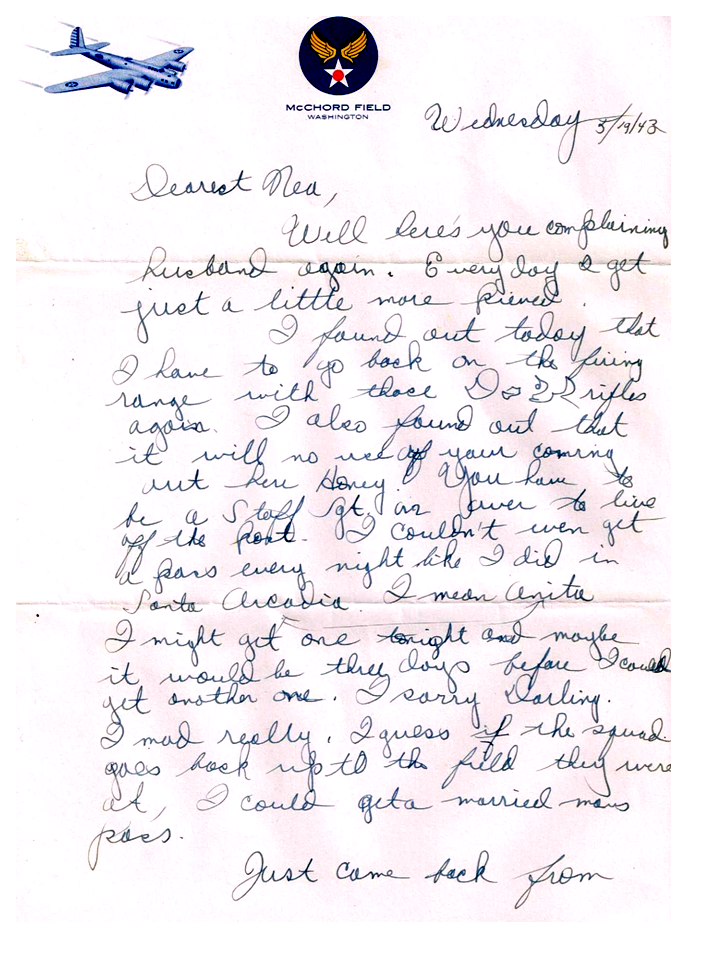 McCHORD FIELD
WASHINGTON
Wednesday 5/19/43
Dearest Nea,
Well here's you complaining
husband again. Everyday I get
just a little more pieved.
I found out today that
I have to go back on the firing
range with those rifles
again. I also found out that
it will no use of your coming
out here Honey. You have to
be a Staff Sgt. or over to live
off the post. I couldn't even get
a pass every night like I did in
Santa Arcadia. I mean Anita
I might get one tonight and maybe
it would be three days before I could
get another one. I sorry Darling.
I mad really. I guess if the squad.
goes back up to the field they were
at, I could get a married mans
pass.
Just came back from